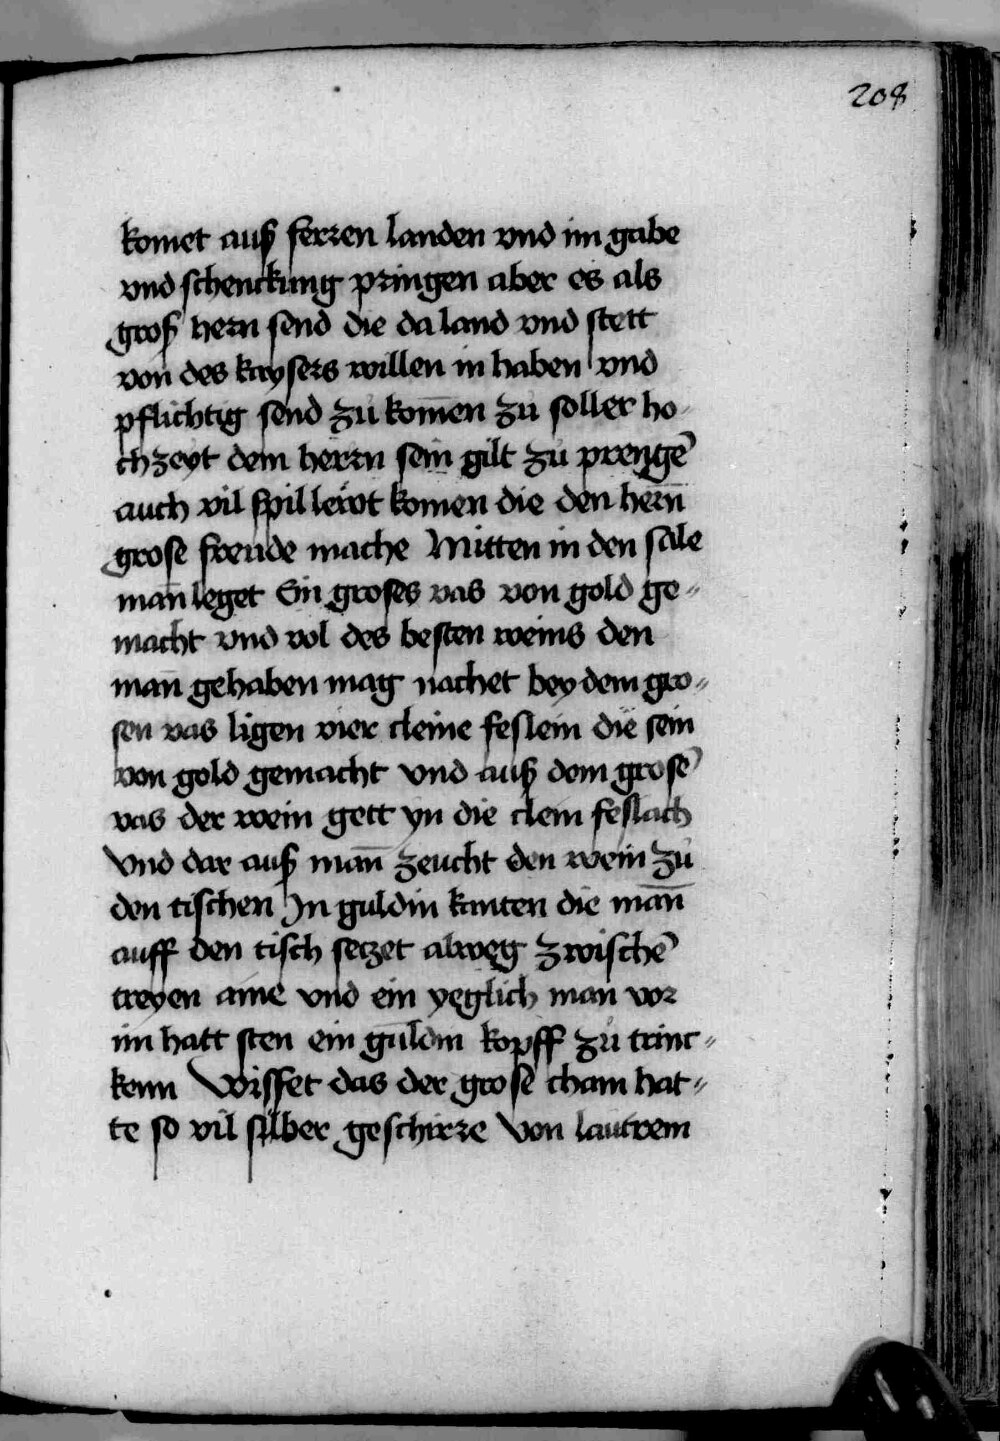 208
komet auß ferren landen vnd im gabe
vnd schenckung pringen aber es als
groß hern send die da land vnd stett
von des kaysers willen in haben vnd
pflichtig send zu kom̄en zu soller ho-
chzeyt dem herrn sein gilt zu prengē
auch vil spil lewt komen die den hern̄
grose freude mache Mitten in den sale
man̄ leget Ein groses vas von gold ge-
macht vnd vol des besten weins den
man̄ gehaben mag nachet bey dem gro-
sen vas ligen vier cleine feslein die sein
von gold gemacht vnd auß dem grosē
vas der wein gett yn die clein feslach
Vnd dar auß man̄ zeucht den wein zu
den tischen In guldin kanten die man̄
auff den tisch seczet alweg zwischē
treyen aine vnd ein yeglich man vor
im hatt sten ein guldin kopff zu trinc-
kenn Wisset das der grose cham hat-
te so vil silber geschirre von lautrem